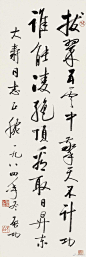 拔翠五云中擎天不计功
谁能凌绝顶看取日升东
大寿同志正腕 一九八四年冬 启功